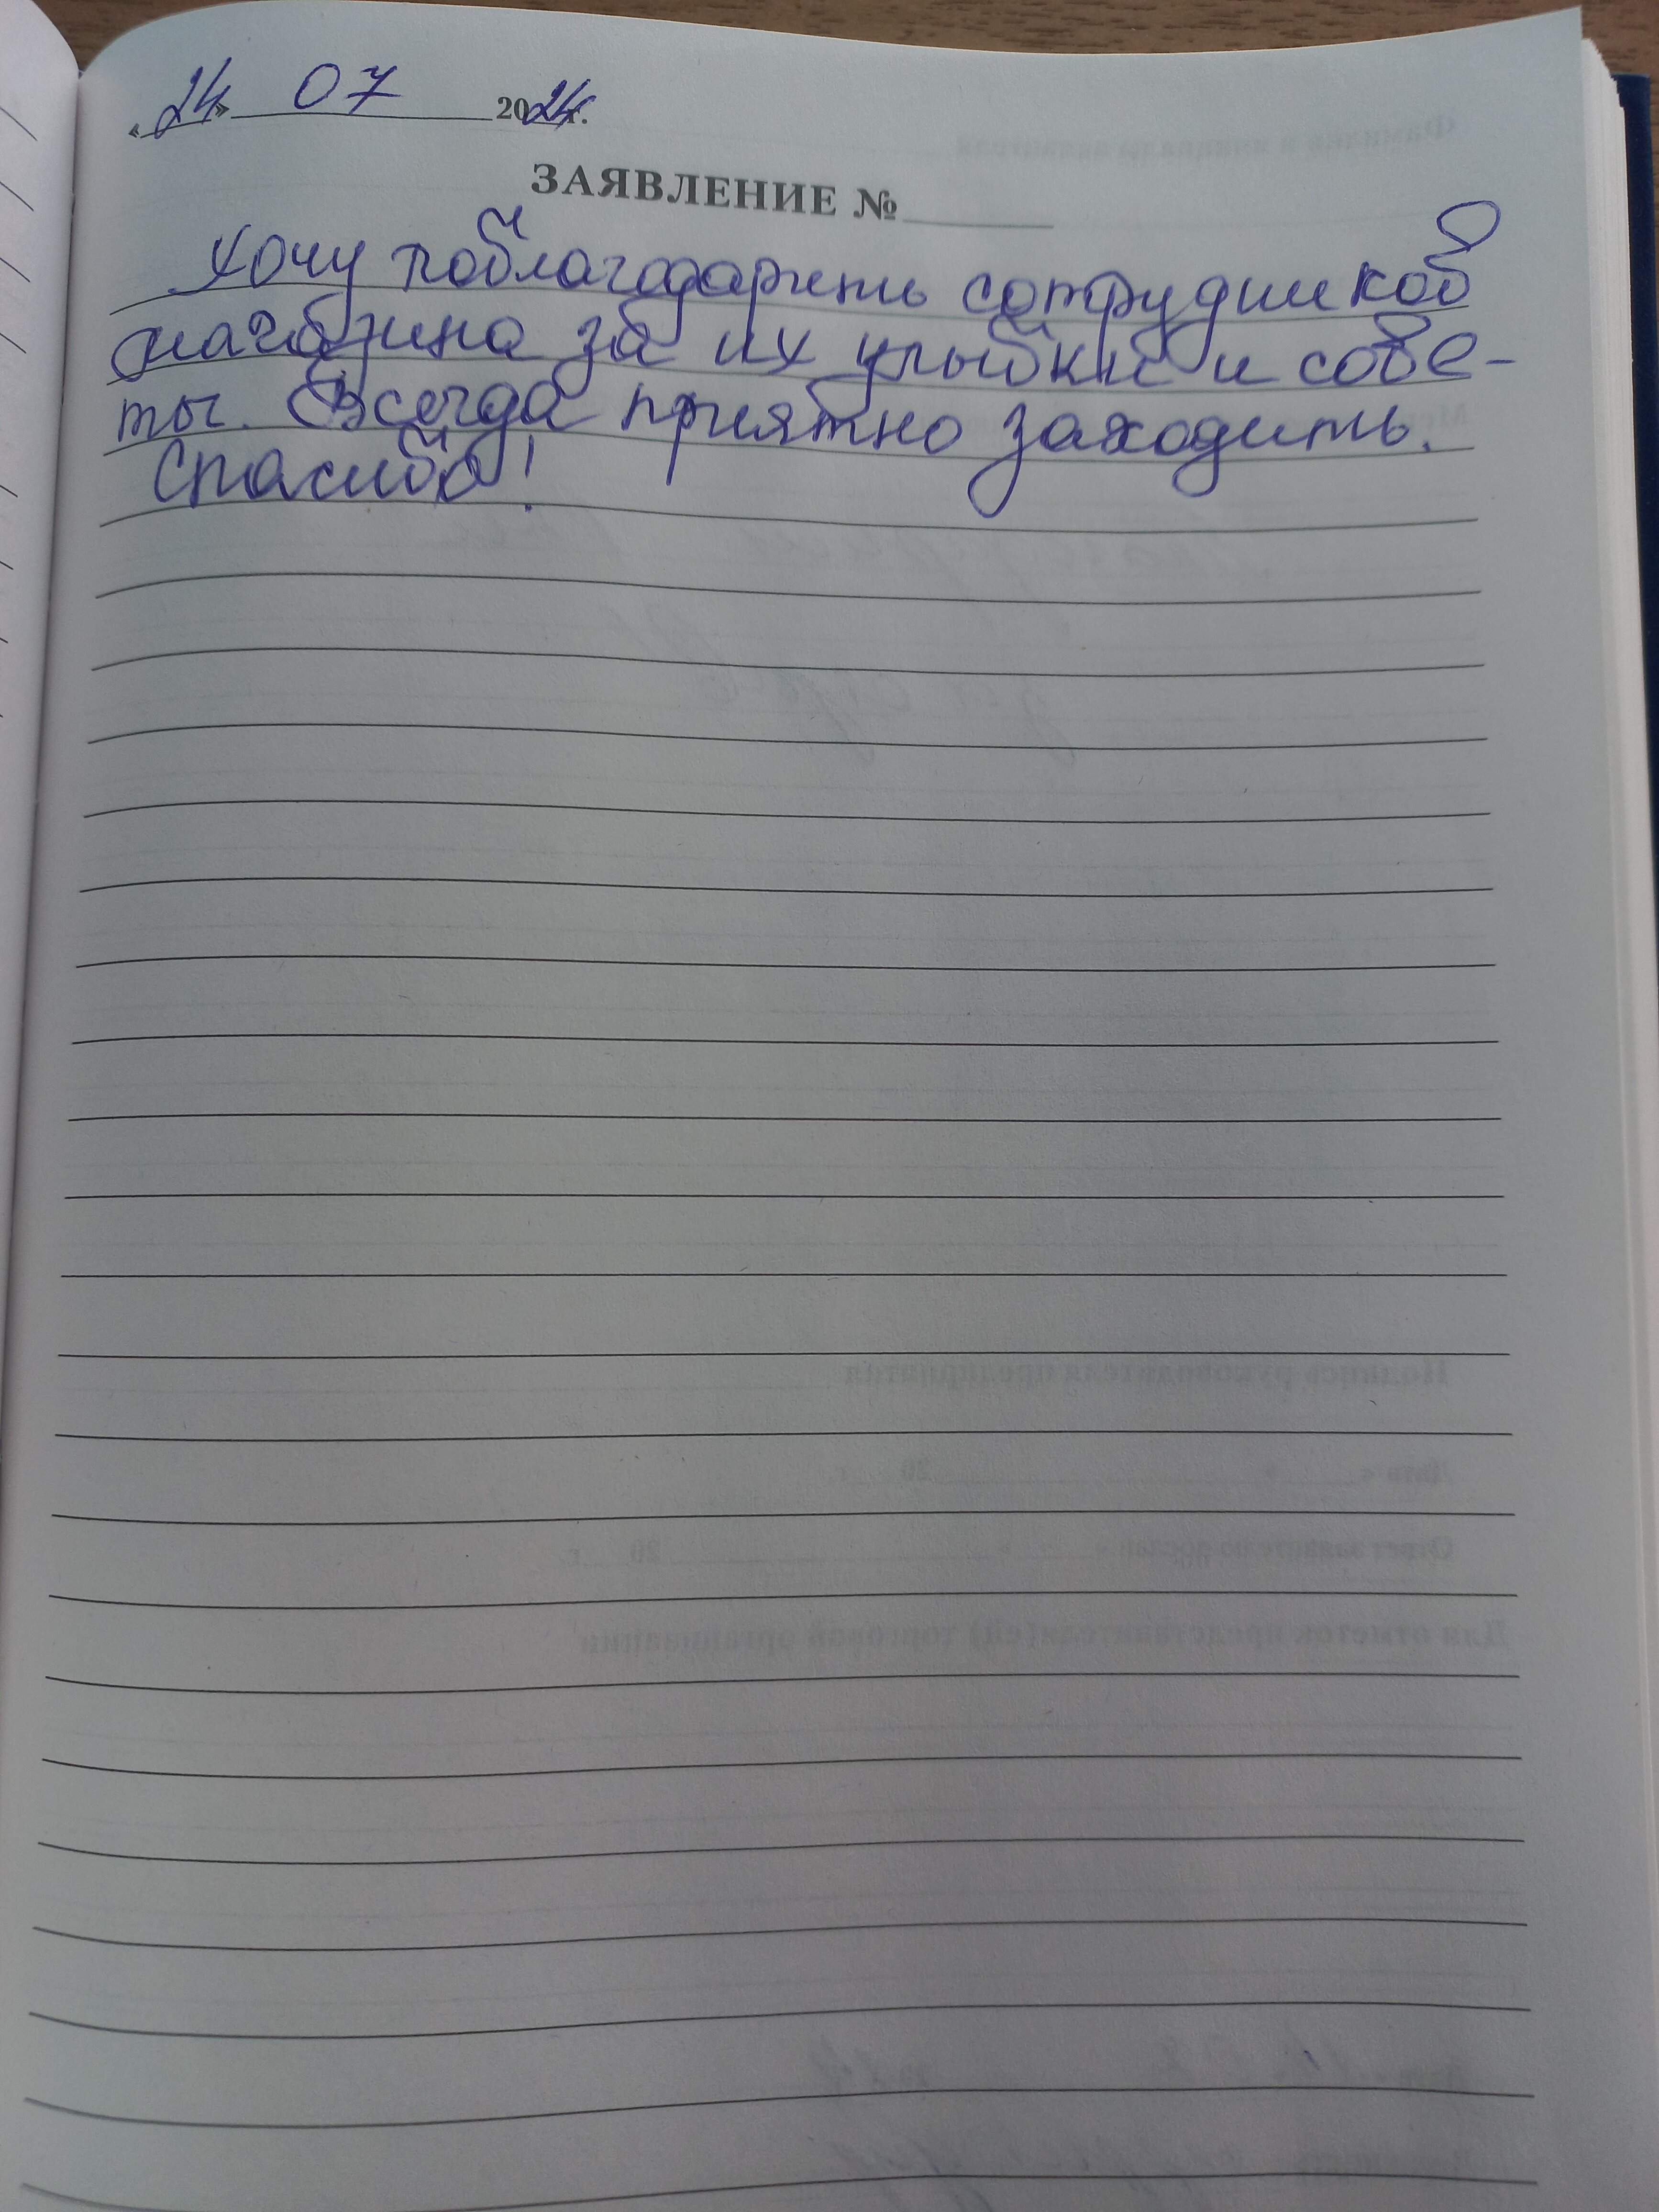 «24» 07 2024г.
ЗАЯВЛЕНИЕ №
Хочу поблагодарить сотрудников
магазина за их улыбки и сове-
ты. Всегда приятно заходить.
Спасибо!